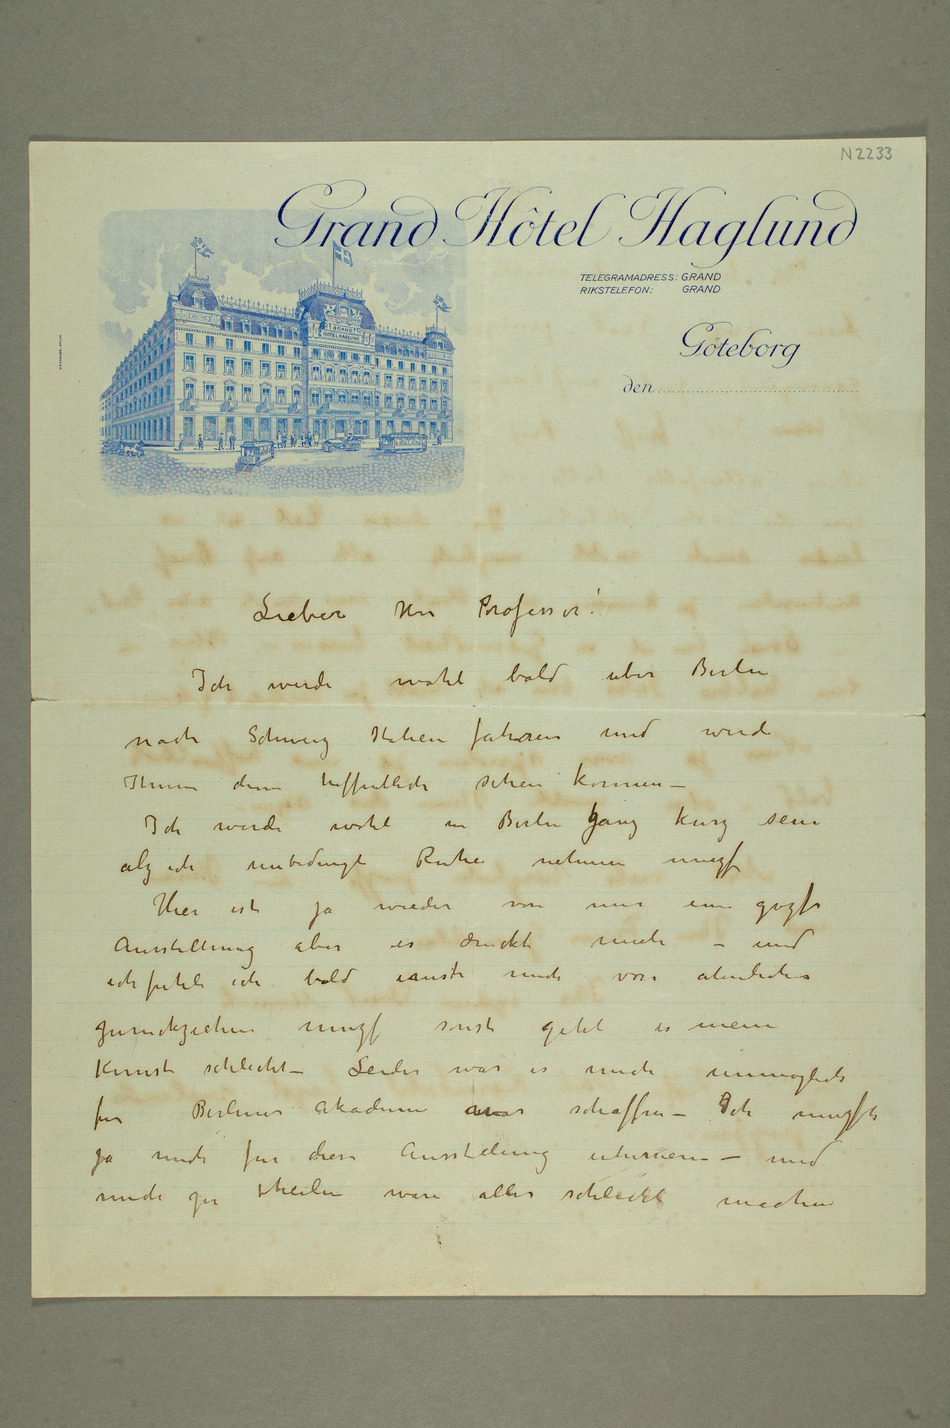 N2233
Grand Hôtel Haglund
TELEGRAMADRESS: GRAND
RIKSTELEFON: GRAND
GRAND
HOTEL HAGLUND
Göteborg
den
Lieber Herr Professor!
Ich werde wohl bald uber Berlin
nach Schweiz Italien fahren und werde
Ihnen dann hoffentlich sehen konnen –
Ich werde wohl in Berlin ganz kurz sein
alz ich unbedingt Ruhe nehmen muzf
Hier ist ja wieder von mir eine grozfe
Ausstellung aber es druckt mich – und
ich fuhle ich bald mich von ahnliches
zuruckziehen muzf sonst geht es meine
Kunst schlecht – Leider war es mich unmoglich
fur Berliner Akademie was schaffen – Ich muzfte
ja mich fur diese Ausstelung – und
mich zu theilen ware alles schlecht machen